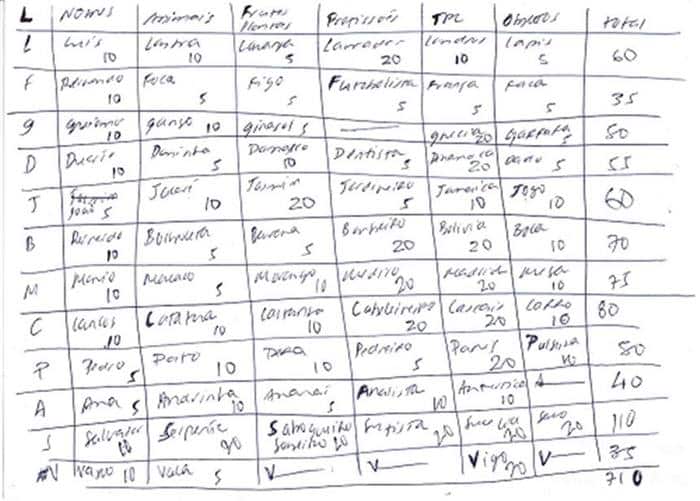 L Nomes Animais Frutos Plantas Profissões TPC Objetos total
L Luís 10 Lontra 10 Laranja 5 Lavrador 20 Londres 10 Lapis 5 60
F Fernando 10 Foca 5 Figo 5 Futebolista 5 França 5 Faca 5 35
g guilherme 10 ganso 10 girassol 5 — grecia 20 Garrafa 5 50
D Duarte 10 Doninha 5 Damasco 10 Dentista 5 Dinamarca 20 Dado 5 55
J João 5 Javali 10 Jasmin 20 Jardineiro 5 Jamaica 10 Jogo 10 60
B Bernardo 10 5 Banana 5 Banheiro 20 Bolívia 20 Bola 10 70
M Mario 10 Macaco 5 Morango 10 Medico 20 Madrid 20 Mesa 10 75
C Carlos 10 Catatua 10 Castanha 10 20 Cascais 20 Carro 10 80
P Pedro 5 Pato 10 Pera 10 Pedreiro 5 Paris 20 Pulseira 10 50
A Ana 5 Andorinha 10 Ananás 5 10 10 A— 40
S Salvador 10 Serpente 20 20 20 Suecia 20 Saco 20 110
V Vasco 10 Vaca 5 V— V— Vigo 20 V— 35
710